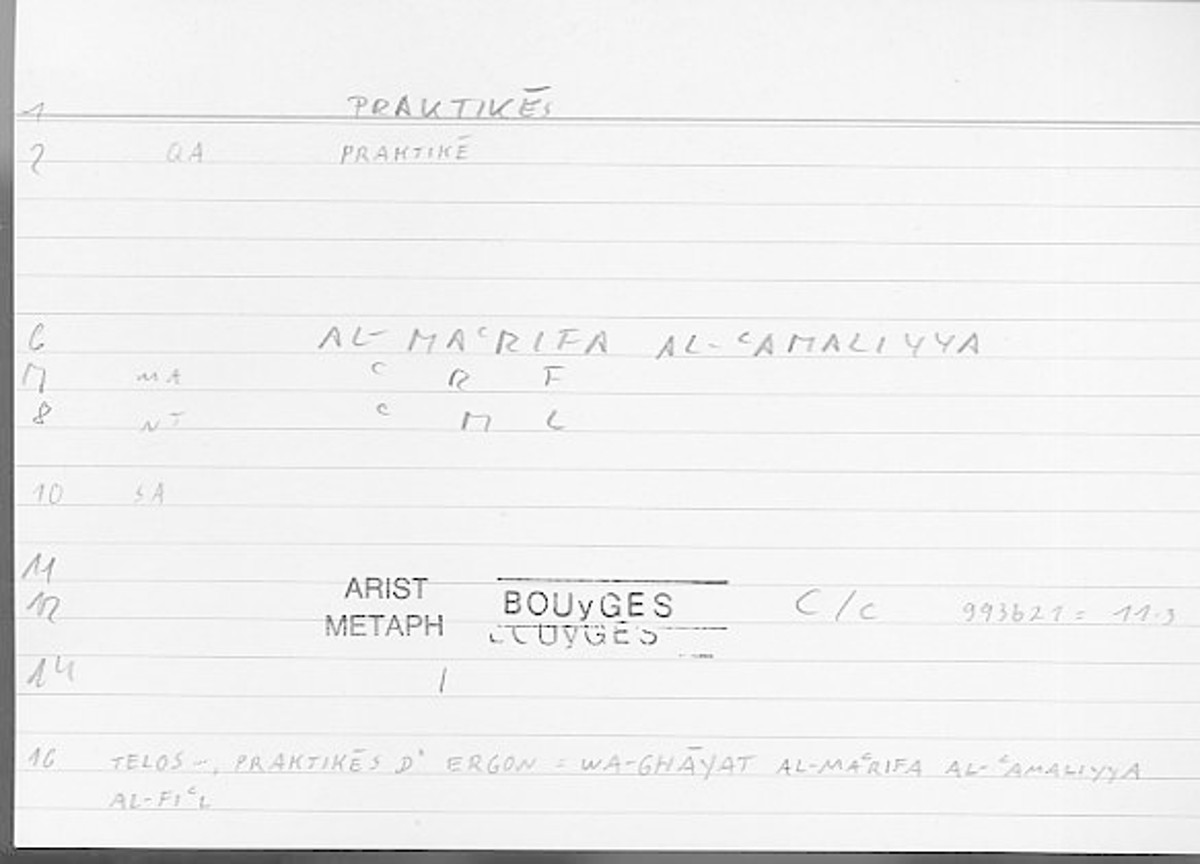 1 PRAKTIKĒS
2 QA PRAKTIKĒ
6 AL-MAᶜRIFA AL-ᶜAMALIYYA
7 MA ᶜ R F
8 NT ᶜ M L
10 SA
11
12 ARIST METAPH BOUyGES C/c 993b21 = 11.3
14 1
16 TELOS ~, PRAKTIKĒS D' ERGON = WA-GHĀYAT AL-MAᶜRIFA AL-ᶜAMALIYYA
AL-FIᶜL